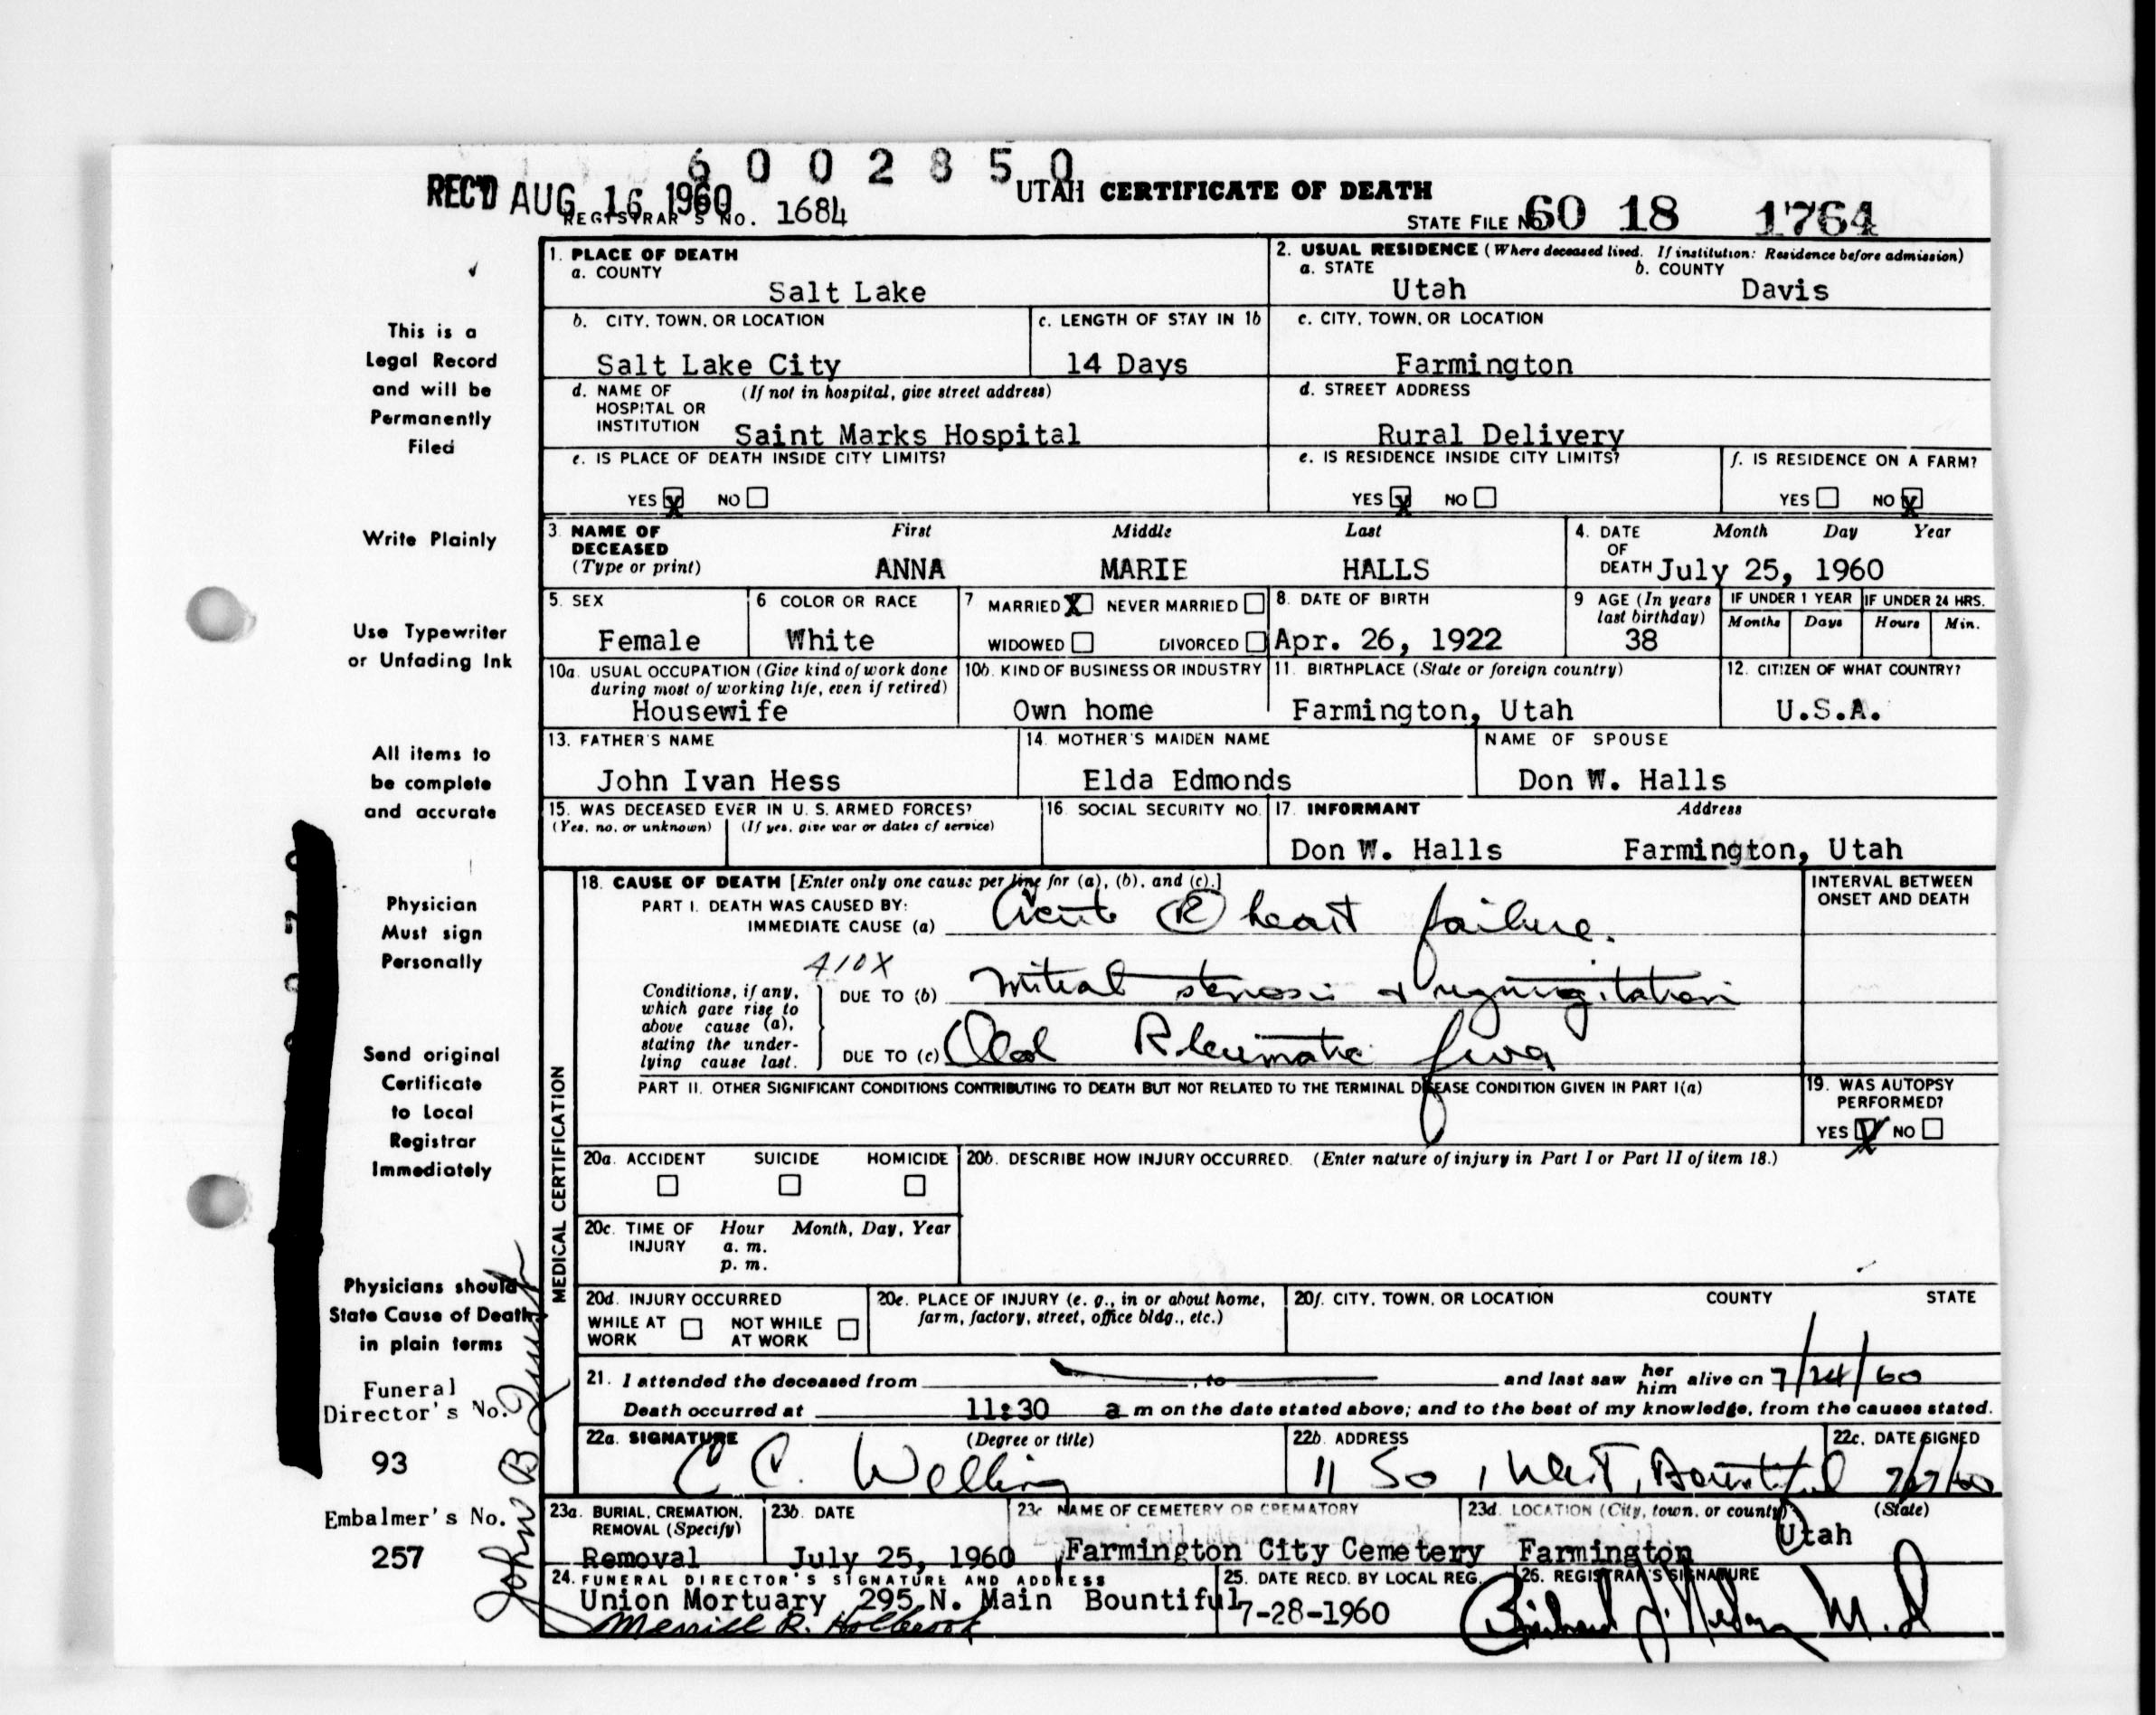 6 0 0 2 8 5 0
REC'D AUG 16 1960
REGISTRAR'S NO. 1684
UTAH CERTIFICATE OF DEATH
STATE FILE NO. 60 18 1764
This is a
Legal Record
and will be
Permanently
Filed
Write Plainly
Use Typewriter
or Unfading Ink
All items to
be complete
and accurate
Physician
Must sign
Personally
Send original
Certificate
to Local
Registrar
Immediately
Physicians should
State Cause of Death
in plain terms
Funeral
Director's No.
93
Embalmer's No.
257
1. PLACE OF DEATH
a. COUNTY
Salt Lake
2. USUAL RESIDENCE (Where deceased lived. If institution: Residence before admission)
a. STATE b. COUNTY
Utah Davis
b. CITY, TOWN, OR LOCATION
Salt Lake City
c. LENGTH OF STAY IN 1b
14 Days
c. CITY, TOWN, OR LOCATION
Farmington
d. NAME OF (If not in hospital, give street address)
HOSPITAL OR
INSTITUTION
Saint Marks Hospital
d. STREET ADDRESS
Rural Delivery
e. IS PLACE OF DEATH INSIDE CITY LIMITS?
YES X NO
e. IS RESIDENCE INSIDE CITY LIMITS?
YES X NO
f. IS RESIDENCE ON A FARM?
YES NO X
3 NAME OF DECEASED
(Type or print)
First Middle Last
ANNA MARIE HALLS
4. DATE OF DEATH Month Day Year
July 25, 1960
5. SEX
Female
6 COLOR OR RACE
White
7 MARRIED X NEVER MARRIED
WIDOWED DIVORCED
8. DATE OF BIRTH
Apr. 26, 1922
9 AGE (In years
last birthday)
38
IF UNDER 1 YEAR IF UNDER 24 HRS.
Months Days Hours Min.
10a. USUAL OCCUPATION (Give kind of work done
during most of working life, even if retired)
Housewife
10b. KIND OF BUSINESS OR INDUSTRY
Own home
11. BIRTHPLACE (State or foreign country)
Farmington, Utah
12. CITIZEN OF WHAT COUNTRY?
U.S.A.
13. FATHER'S NAME
John Ivan Hess
14. MOTHER'S MAIDEN NAME
Elda Edmonds
NAME OF SPOUSE
Don W. Halls
15. WAS DECEASED EVER IN U. S. ARMED FORCES?
(Yes, no, or unknown) (If yes, give war or dates of service)
16. SOCIAL SECURITY NO.
17. INFORMANT Address
Don W. Halls Farmington, Utah
MEDICAL CERTIFICATION
18. CAUSE OF DEATH [Enter only one cause per line for (a), (b), and (c).]
PART I. DEATH WAS CAUSED BY:
IMMEDIATE CAUSE (a) Acute R heart failure.
410X
Conditions, if any,
which gave rise to
above cause (a),
stating the under-
lying cause last.
DUE TO (b) Mitral stenosis & regurgitation
DUE TO (c) Old Rheumatic fever
INTERVAL BETWEEN
ONSET AND DEATH
PART II. OTHER SIGNIFICANT CONDITIONS CONTRIBUTING TO DEATH BUT NOT RELATED TO THE TERMINAL DISEASE CONDITION GIVEN IN PART I(a)
19. WAS AUTOPSY
PERFORMED?
YES X NO
20a. ACCIDENT SUICIDE HOMICIDE
20b. DESCRIBE HOW INJURY OCCURRED. (Enter nature of injury in Part I or Part II of item 18.)
20c. TIME OF INJURY Hour Month, Day, Year
a. m.
p. m.
20d. INJURY OCCURRED
WHILE AT WORK NOT WHILE AT WORK
20e. PLACE OF INJURY (e. g., in or about home,
farm, factory, street, office bldg., etc.)
20f. CITY, TOWN, OR LOCATION COUNTY STATE
21. I attended the deceased from , to and last saw her him alive on 7/24/60
Death occurred at 11:30 a m on the date stated above; and to the best of my knowledge, from the causes stated.
22a. SIGNATURE (Degree or title)
C C. Welling
22b. ADDRESS
11 So 1 West, Bountiful
22c. DATE SIGNED
7/27/60
23a. BURIAL, CREMATION,
REMOVAL (Specify)
Removal
23b. DATE
July 25, 1960
23c NAME OF CEMETERY OR CREMATORY
Farmington City Cemetery
23d. LOCATION (City, town, or county) (State)
Farmington Utah
24. FUNERAL DIRECTOR'S SIGNATURE AND ADDRESS
Union Mortuary 295 N. Main Bountiful
Merrill R. Holbrook
25. DATE RECD. BY LOCAL REG.
7-28-1960
26. REGISTRAR'S SIGNATURE
M.D
John B